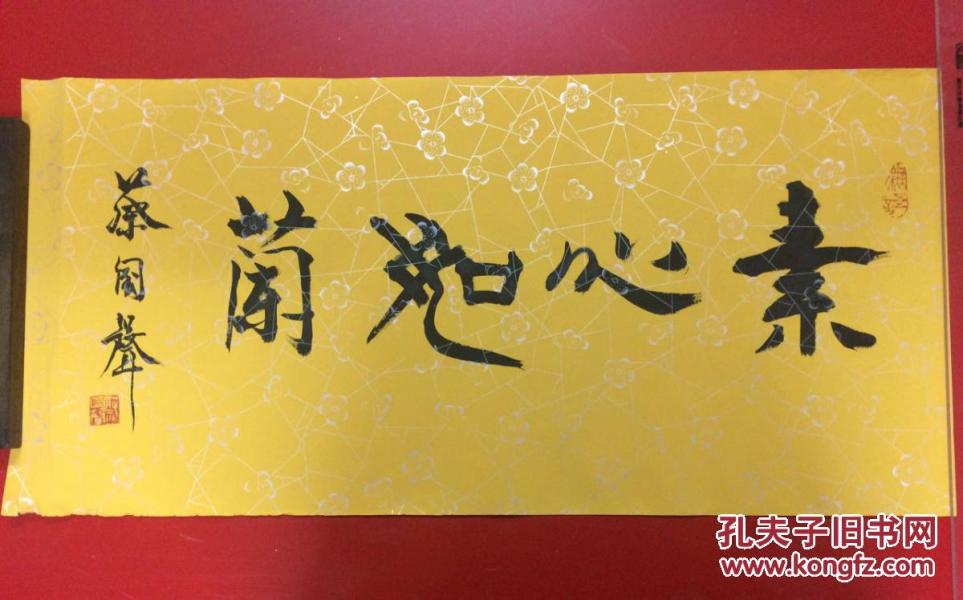 素心如蘭
蔡國聲
孔夫子旧书网
www.kongfz.com